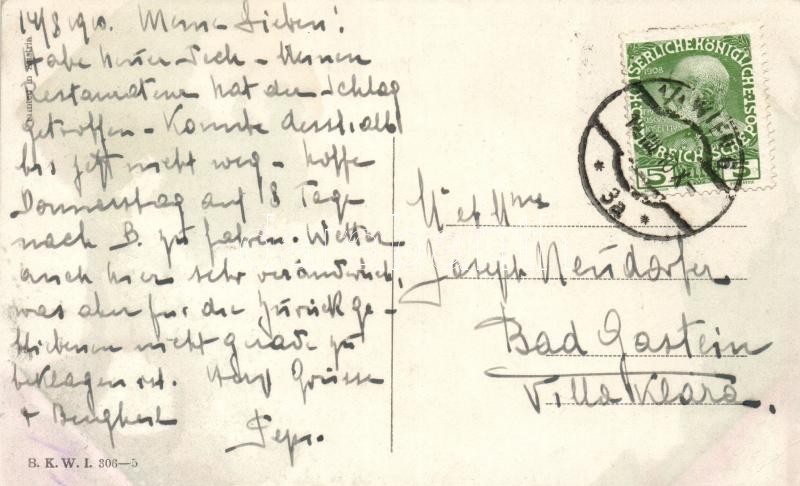 14/8 910. Meine Lieben!
Habe
Restaurateur hat der Schlag
getroffen - Konnte deshalb
bis jetzt nicht weg - hoffe
Donnerstag auf 8 Tage
nach B. zu fahren. Wetter
auch hier sehr veränderlich,
was aber für die Zurückge-
bliebenen nicht gerade zu
beklagen ist. Grüsse
Pepi.
B. K. W. I. 306—5
KAISERLICHE KÖNIGLICHE ÖSTERR. POST
1908
5 5
WIEN
* 3a *
Joseph Neudörfer
Bad Gastein
Villa Klara.